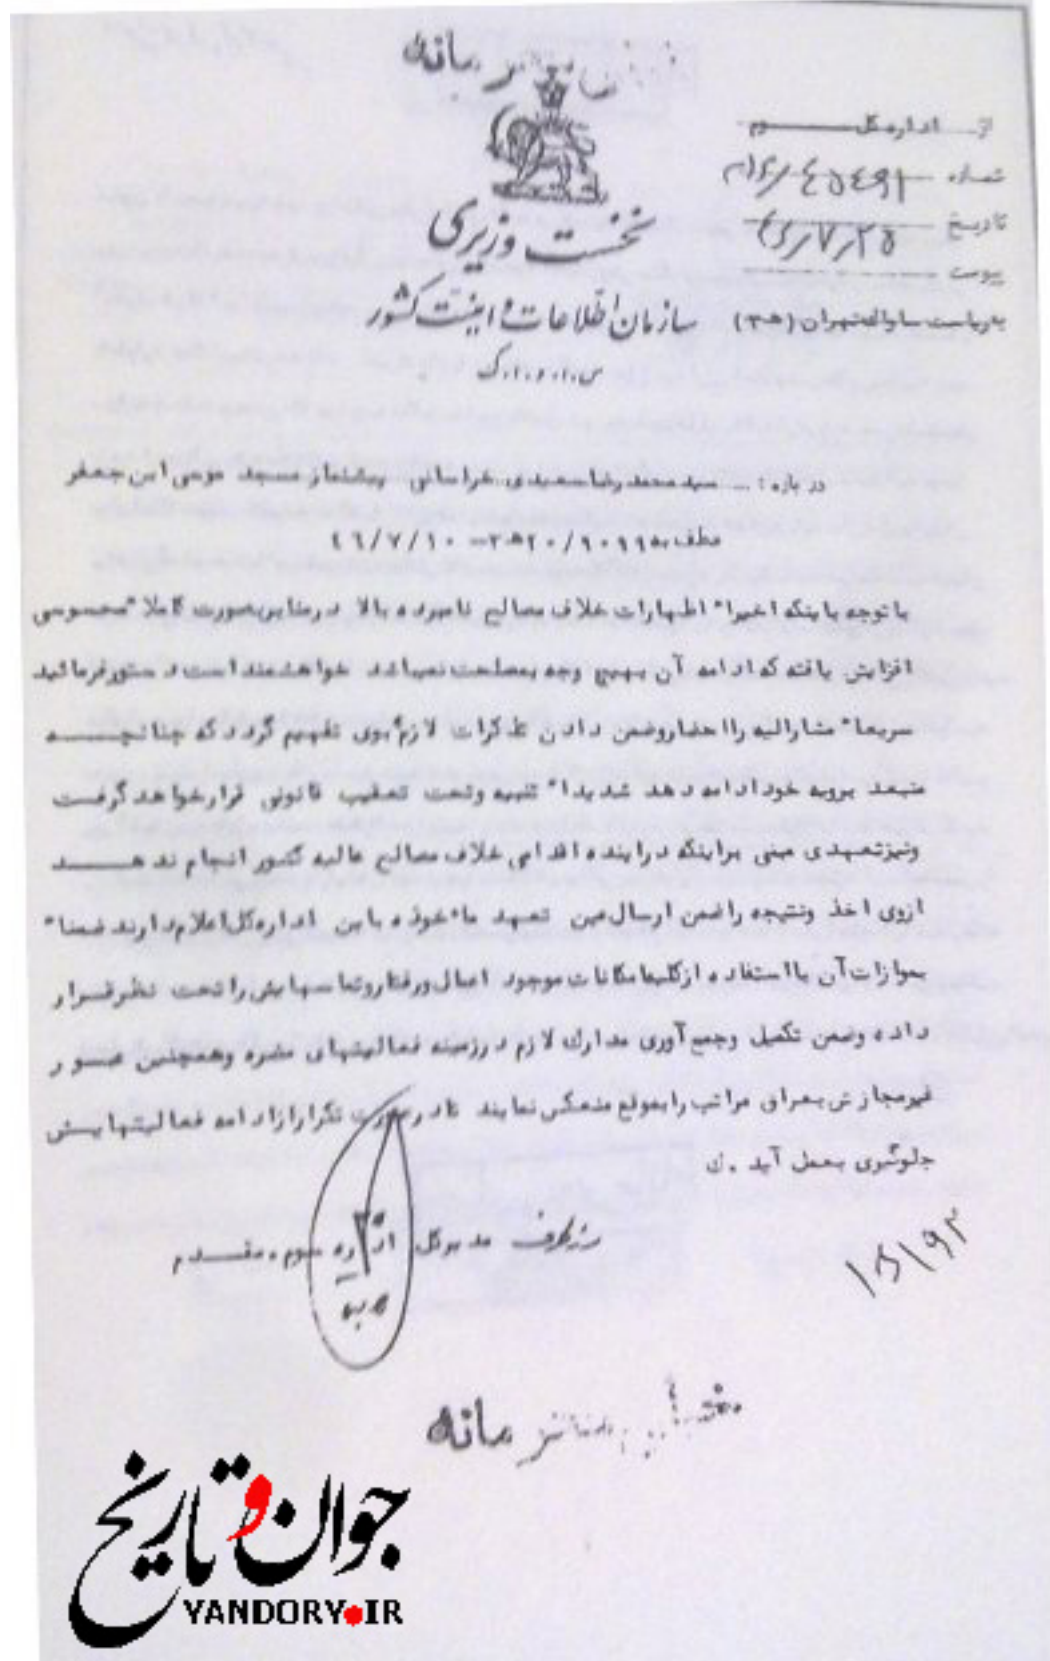 از اداره کل سوم
شماره ۳۱۶/۴۵۴۹۲
تاریخ ۴۶/۷/۲۵
پیوست
نخست وزیری
سازمان اطلاعات و امنیت کشور
س.ا.و.ا.ک
به ریاست ساواک تهران (۳ه)
درباره: سید محمد رضا سعیدی خراسانی پیشنماز مسجد موسی ابن جعفر
عطف به ۲۰/۹۰۹۹ه۳-۴۶/۷/۱۰
باتوجه باینکه اخیرا" اظهارات خلاف مصالح نامبرده بالا درمنابر بصورت کاملا" محسوسی
افزایش یافته که ادامه آن بهیچ وجه بمصلحت نمیباشد خواهشمند است دستور فرمائید
سریعا" مشارالیه را احضار وضمن دادن تذکرات لازم بوی تفهیم گردد که چنانچه
منبعد برویه خود ادامه دهد شدیدا" تنبیه وتحت تعقیب قانونی قرار خواهد گرفت
ونیز تعهدی مبنی براینکه در اینده اقدامی خلاف مصالح عالیه کشور انجام ندهد
ازوی اخذ ونتیجه را ضمن ارسال عین تعهد ماخوذه باین اداره کل اعلام دارند ضمنا"
بموازات آن با استفاده از کلیه امکانات موجود اعمال ورفتار وتماسهایش را تحت نظر قرار
داده وضمن تکمیل وجمع آوری مدارک لازم در زمینه فعالیتهای مضره وهمچنین صدور
غیرمجازش بعراق مراتب را بموقع منعکس نمایند تا در صورت تکرار از ادامه فعالیتهایش
جلوگیری بعمل آید .ک
مدیرکل اداره سوم . مقدم
جوان و تاریخ
YANDORY.IR